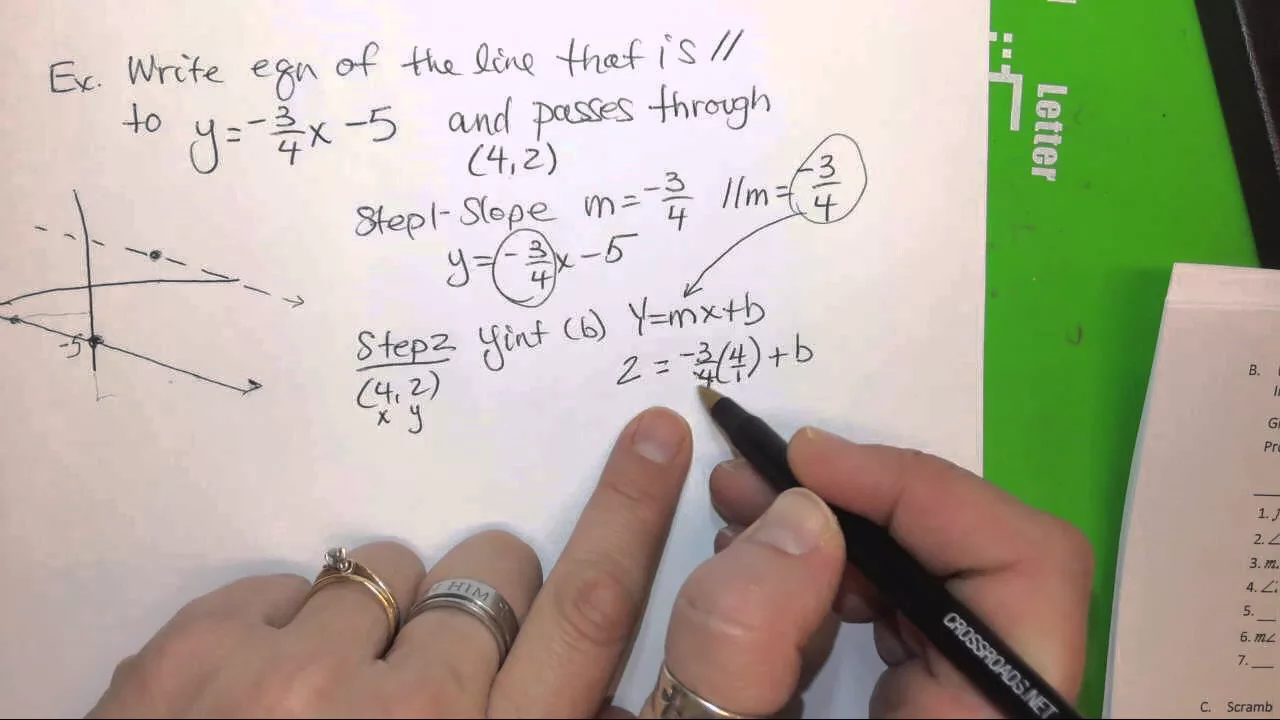 Ex. Write eqn of the line that is //
to y = -3/4 x - 5 and passes through
(4, 2)
Step 1 - Slope m = -3/4 // m = -3/4
y = -3/4 x - 5
Step 2 yint (b) y = mx + b
(4, 2)
x y
2 = -3/4 (4/1) + b
-5
Letter
HIM
CROSSROADS.NET
B.
1.
2. ∠
3. m
4. ∠
5. __
6. m∠
7. __
C. Scramb